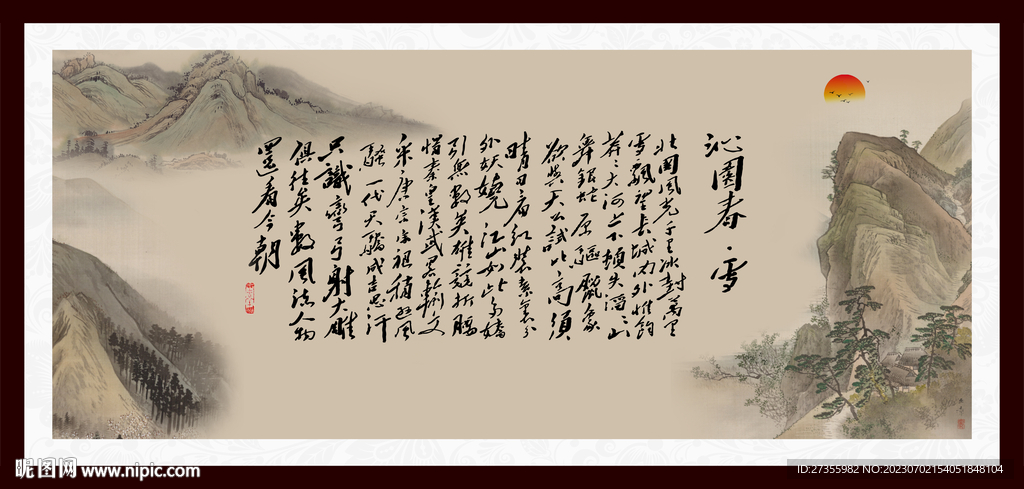 沁園春·雪
北國風光千里冰封萬里
雪飄望長城內外惟餘
莽々大河上下頓失滔々山
舞銀蛇原驅臘象
欲與天公試比高須
晴日看紅裝素裹分
外妖嬈江山如此多嬌
引無數英雄競折腰
惜秦皇漢武略輸文
采唐宗宋祖稍遜風
騷一代天驕成吉思汗
只識彎弓射大雕
俱往矣數風流人物
還看今朝
昵图网 www.nipic.com
ID:27355982 NO:20230702154051848104